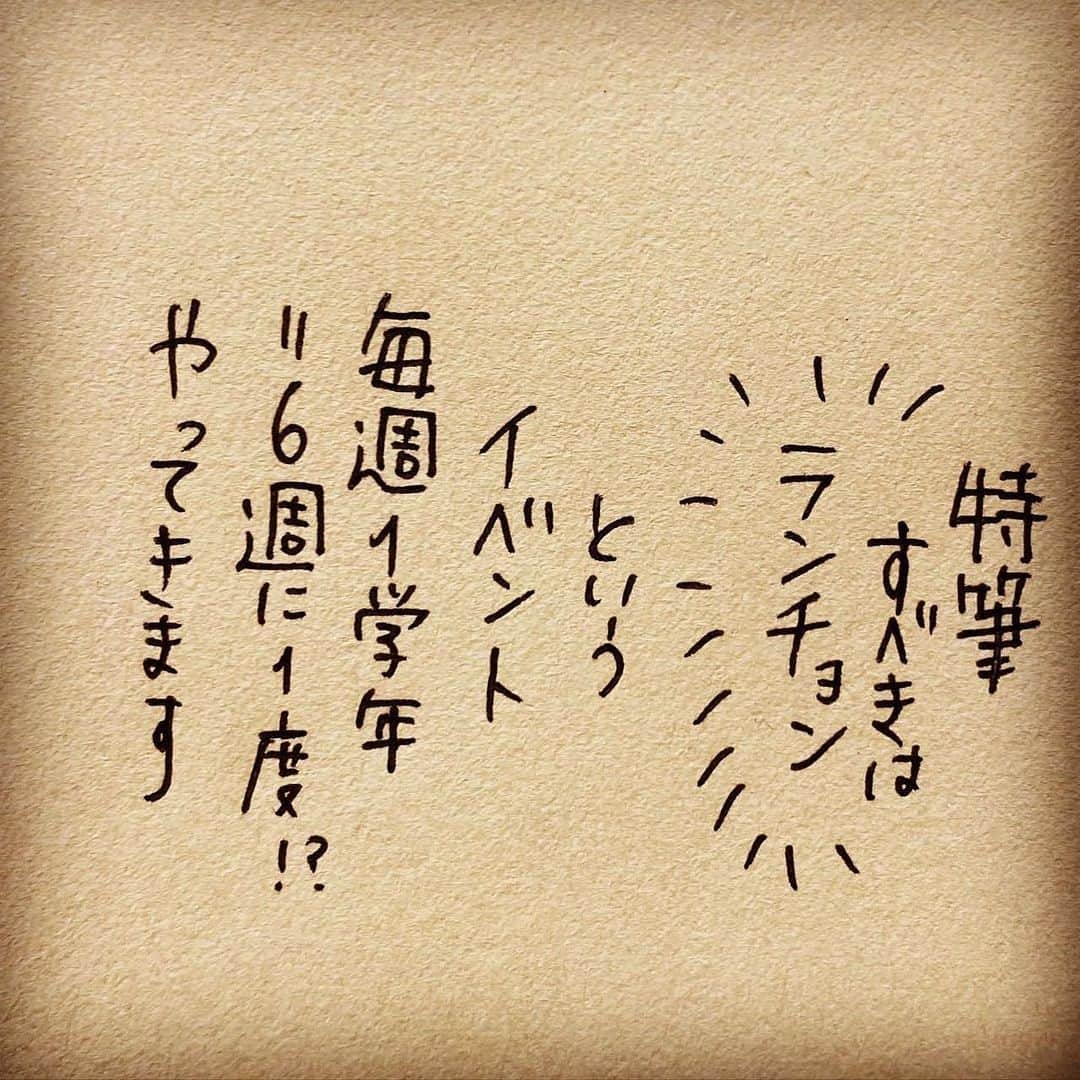 特筆
すべきは
ランチョン
という
イベント
毎週1学年
=6週に1度!?
やってきます